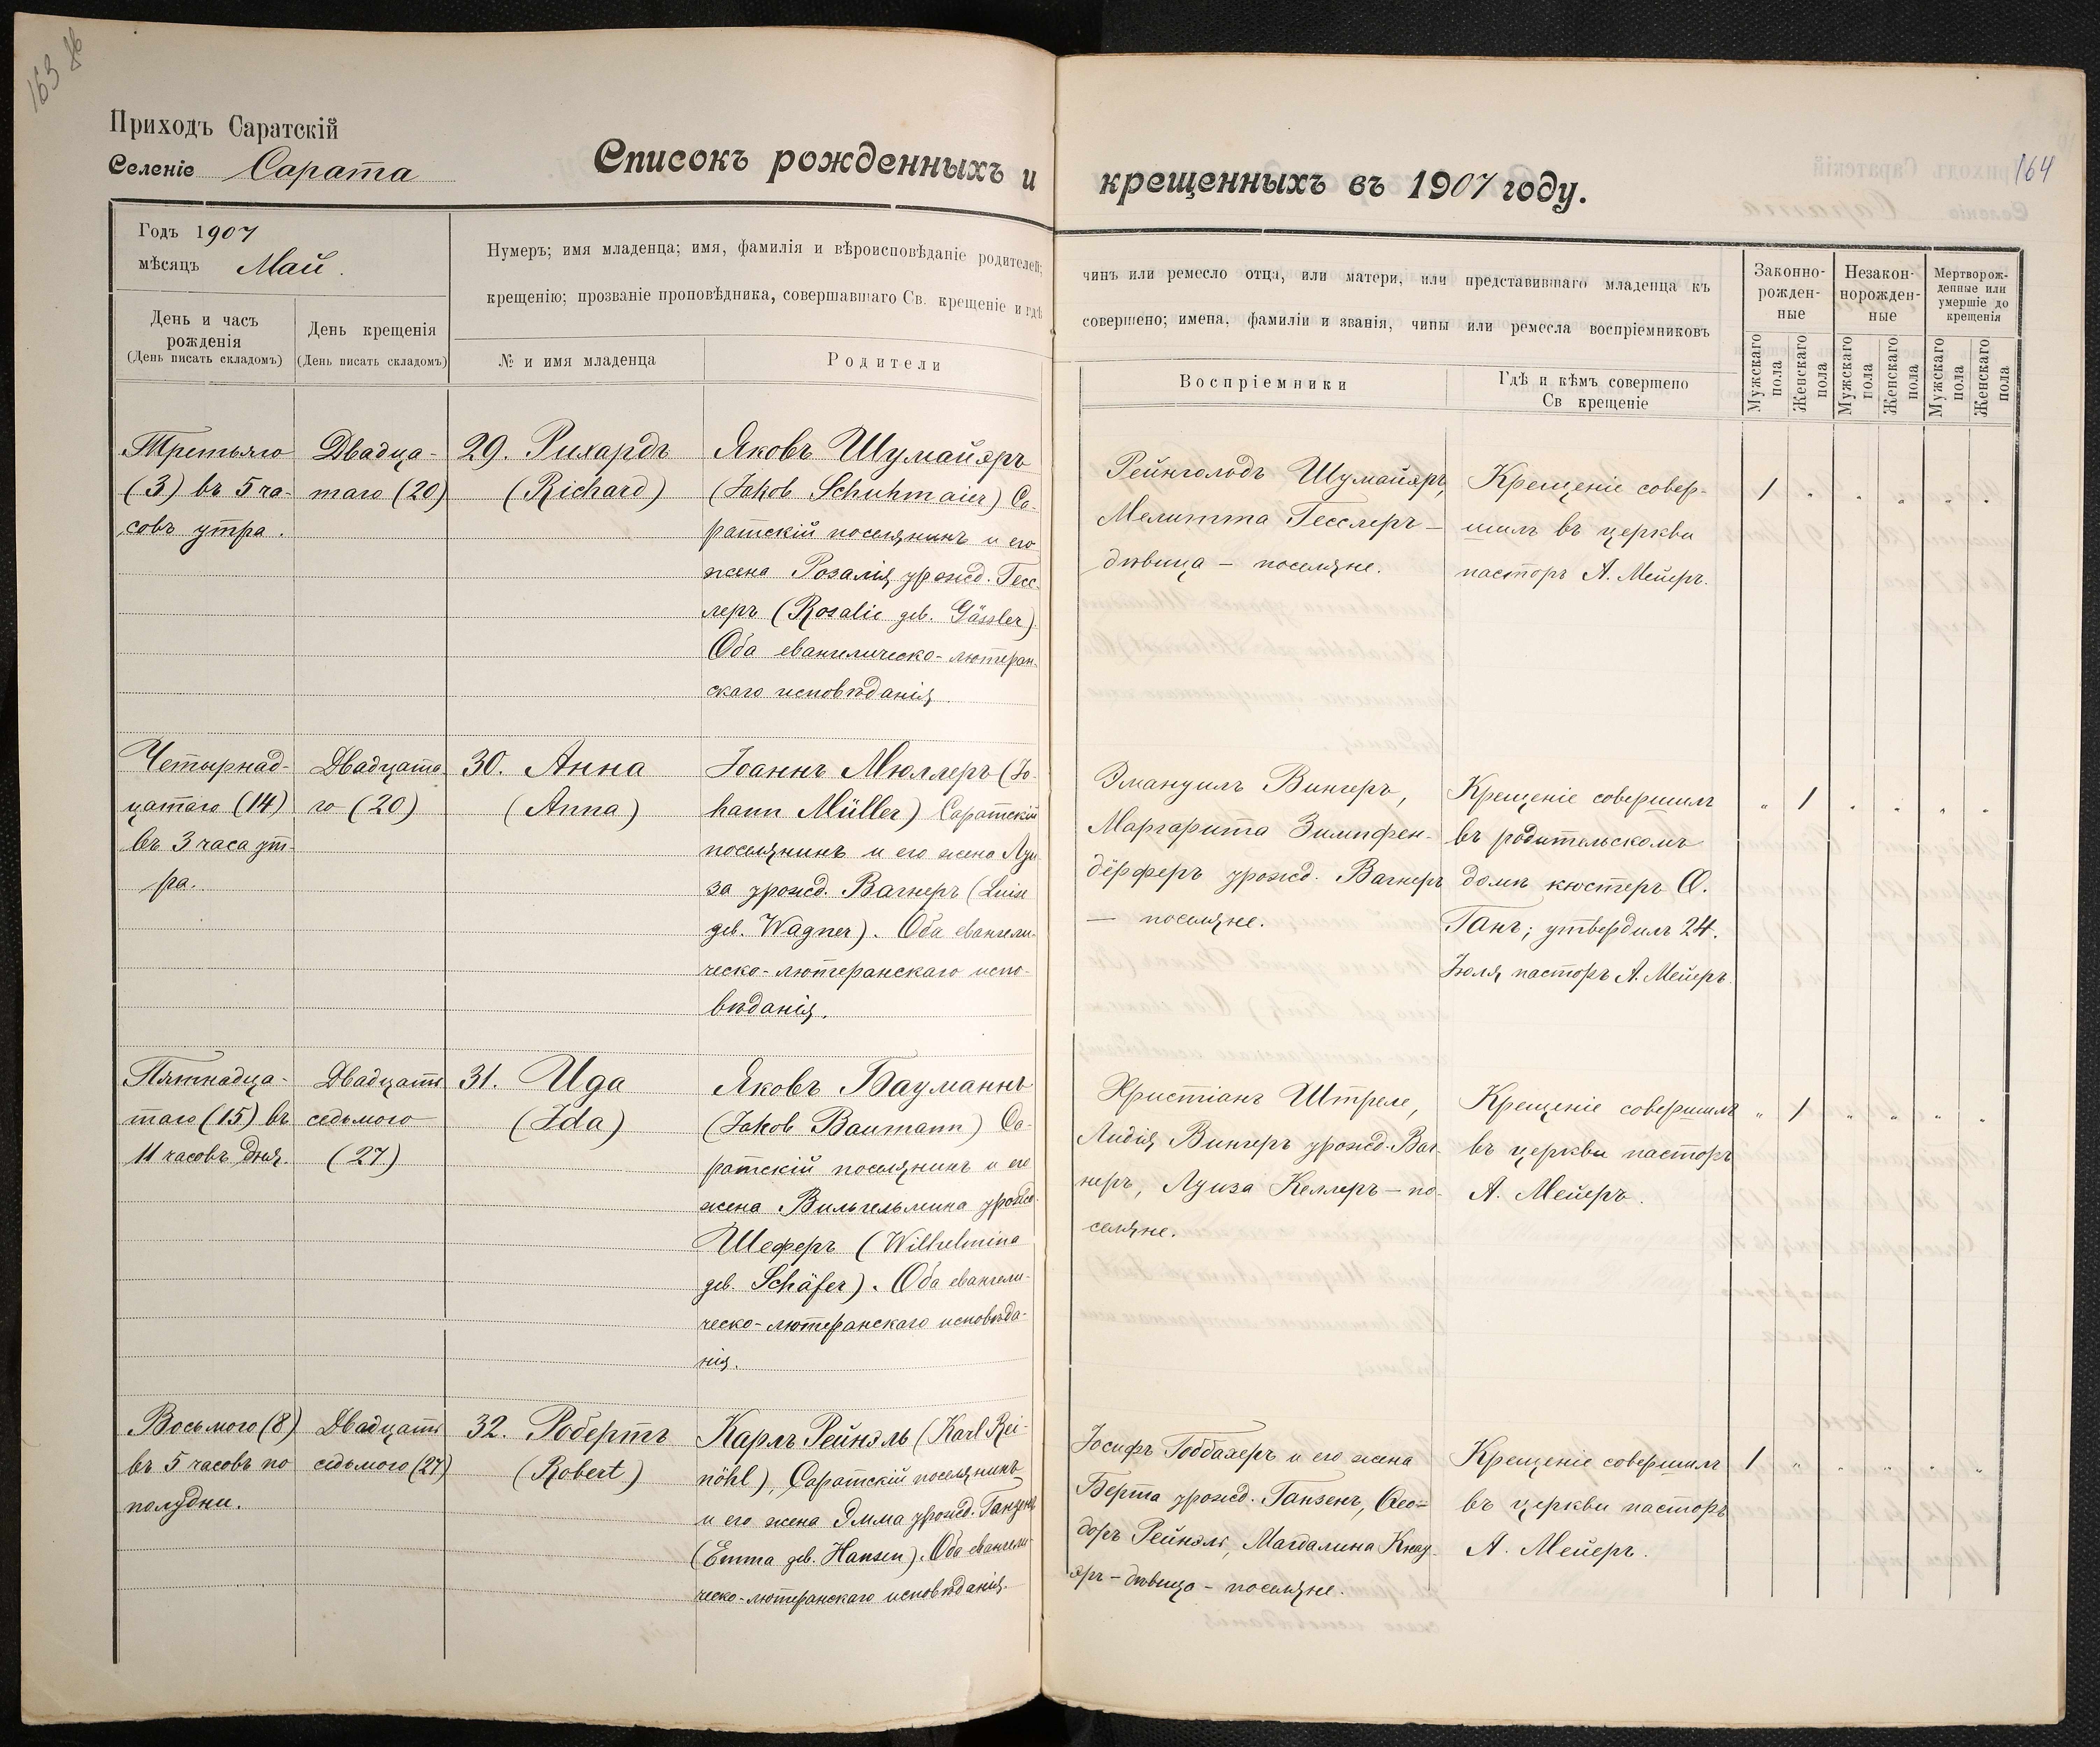 163 об
164
Приходъ Саратскій
Селеніе Сарата
Списокъ рожденныхъ и крещенныхъ въ 1907 году.
Годъ 1907
мѣсяцъ Май.
Нумеръ; имя младенца; имя, фамилія и вѣроисповѣданіе родителей; чинъ или ремесло отца, или матери, или представившаго младенца къ
крещенію; прозваніе проповѣдника, совершавшаго Св. крещеніе и гдѣ совершено; имена, фамиліи и званія, чины или ремесла воспріемниковъ
День и часъ
рожденія
(День писать складомъ)
День крещенія
(День писать складомъ)
№ и имя младенца
Родители
Воспріемники
Гдѣ и кѣмъ совершено
Св крещеніе
Законно-
рожден-
ные
Незакон-
норожден-
ные
Мертворож-
денные или
умершіе до
крещенія
Мужскаго
пола
Женскаго
пола
Мужскаго
пола
Женскаго
пола
Мужскаго
пола
Женскаго
пола
Третьяго
(3) въ 5 ча-
совъ утра.
Двадца-
таго (20)
29. Рихардъ
(Richard)
Яковъ Шумайэръ
(Jakob Schuhmaier) Са-
ратскій поселянинъ и его
жена Розалія урожд. Гесс-
леръ (Rosalie geb. Gässler).
Оба евангелическо-лютеран-
скаго исповѣданія.
Рейнгольдъ Шумайэръ,
Мелитта Гесслеръ —
дѣвица — поселяне.
Крещеніе совер-
шилъ въ церкви
пасторъ А. Мейеръ.
1 " " " " "
Четырнад-
цатаго (14)
въ 3 часа ут-
ра.
Двадцата-
го (20)
30. Анна
(Anna)
Іоаннъ Мюллеръ (Jo-
hann Müller) Саратскій
поселянинъ и его жена Луи-
за урожд. Вагнеръ (Luise
geb. Wagner). Оба евангели-
ческо-лютеранскаго испо-
вѣданія.
Эмануилъ Вингеръ,
Маргарита Зимпфен-
дёрферъ урожд. Вагнеръ
— поселяне.
Крещеніе совершилъ
въ родительскомъ
домѣ кюстеръ О.
Ганъ; утвердилъ 24.
Іюля пасторъ А. Мейеръ.
" 1 " " " "
Пятнадца-
таго (15) въ
11 часовъ дня.
Двадцать
седьмого
(27)
31. Ида
(Ida)
Яковъ Бауманнъ
(Jakob Baumann) Са-
ратскій поселянинъ и его
жена Вильгельмина урожд.
Шеферъ (Wilhelmina
geb. Schäfer). Оба евангели-
ческо-лютеранскаго исповѣда-
нія.
Христіанъ Штреле,
Лидія Вингеръ урожд. Ваг-
неръ, Луиза Келлеръ — по-
селяне.
Крещеніе совершилъ
въ церкви пасторъ
А. Мейеръ.
" 1 " " " "
Восьмого (8)
въ 5 часовъ по
полудни.
Двадцать
седьмого (27)
32. Робертъ
(Robert)
Карлъ Рейнэль (Karl Rei-
nöhl), Саратскій поселянинъ
и его жена Эмма урожд. Ганзенъ
(Emma geb. Hansen). Оба евангели-
ческо-лютеранскаго исповѣданія.
Іосифъ Гоббахеръ и его жена
Берта урожд. Ганзенъ, Ѳео-
доръ Рейнэль, Магдалина Кнау-
эръ — дѣвица — поселяне.
Крещеніе совершилъ
въ церкви пасторъ
А. Мейеръ.
1 " " " " "